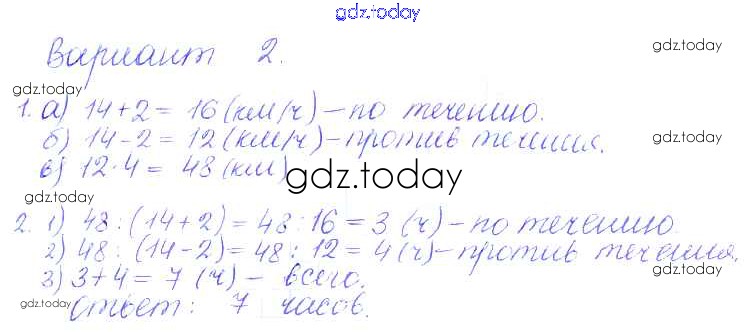 gdz.today
Вариант 2.
gdz.today
gdz.today
1. а) 14+2 = 16 (км/ч) – по течению.
б) 14-2 = 12 (км/ч) – против течения.
gdz.today
в) 12·4 = 48 (км)
gdz.today
gdz.today
2. 1) 48 : (14+2) = 48 : 16 = 3 (ч) – по течению.
2) 48 : (14-2) = 48 : 12 = 4 (ч) – против течения.
gdz.today
3) 3+4 = 7 (ч) – всего.
Ответ: 7 часов.
gdz.today
gdz.today